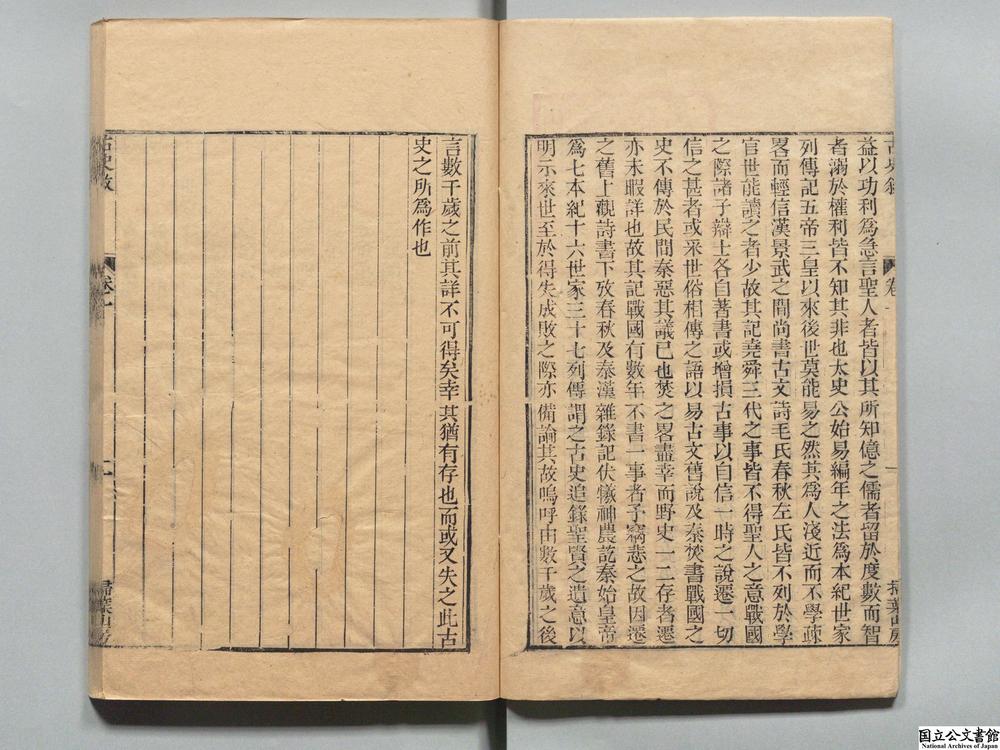 古史敘
卷一
一
掃葉山房
益以功利爲急言聖人者皆以其所知億之儒者留於度數而智
者溺於權利皆不知其非也太史公始易編年之法爲本紀世家
列傳記五帝三皇以來後世莫能易之然其爲人淺近而不學疎
畧而輕信漢景武之間尚書古文詩毛氏春秋左氏皆不列於學
官世能讀之者少故其記堯舜三代之事皆不得聖人之意戰國
之際諸子辯士各自著書或增損古事以自信一時之說遷一切
信之甚者或采世俗相傳之語以易古文舊說及秦焚書戰國之
史不傳於民間秦惡其議已也焚之畧盡幸而野史一二存者遷
亦未暇詳也故其記戰國有數年不書一事者予竊悲之故因遷
之舊上觀詩書下攷春秋及秦漢雜錄記伏犧神農訖秦始皇帝
爲七本紀十六世家三十七列傳謂之古史追錄聖賢之遺意以
明示來世至於得失成敗之際亦備論其故嗚呼由數千歲之後
言數千歲之前其詳不可得矣幸其猶有存也而或又失之此古
史之所爲作也
古史敘
卷一
二
掃葉山房
国立公文書館
National Archives of Japan